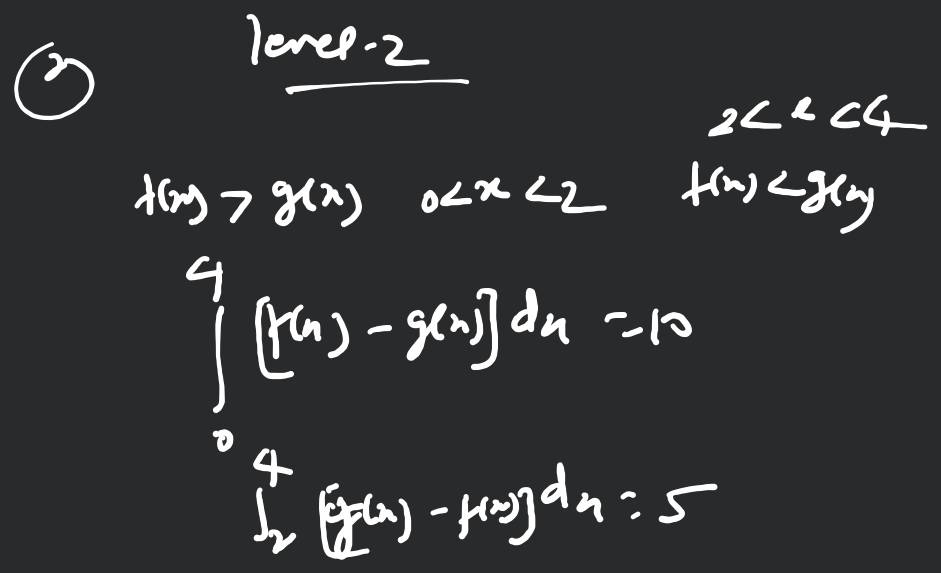 2 level-2
2<x<4
f(x) > g(x) 0<x<2 f(x)<g(x)
∫₀⁴ [f(x) - g(x)] dx = 10
∫₂⁴ [g(x) - f(x)] dx = 5